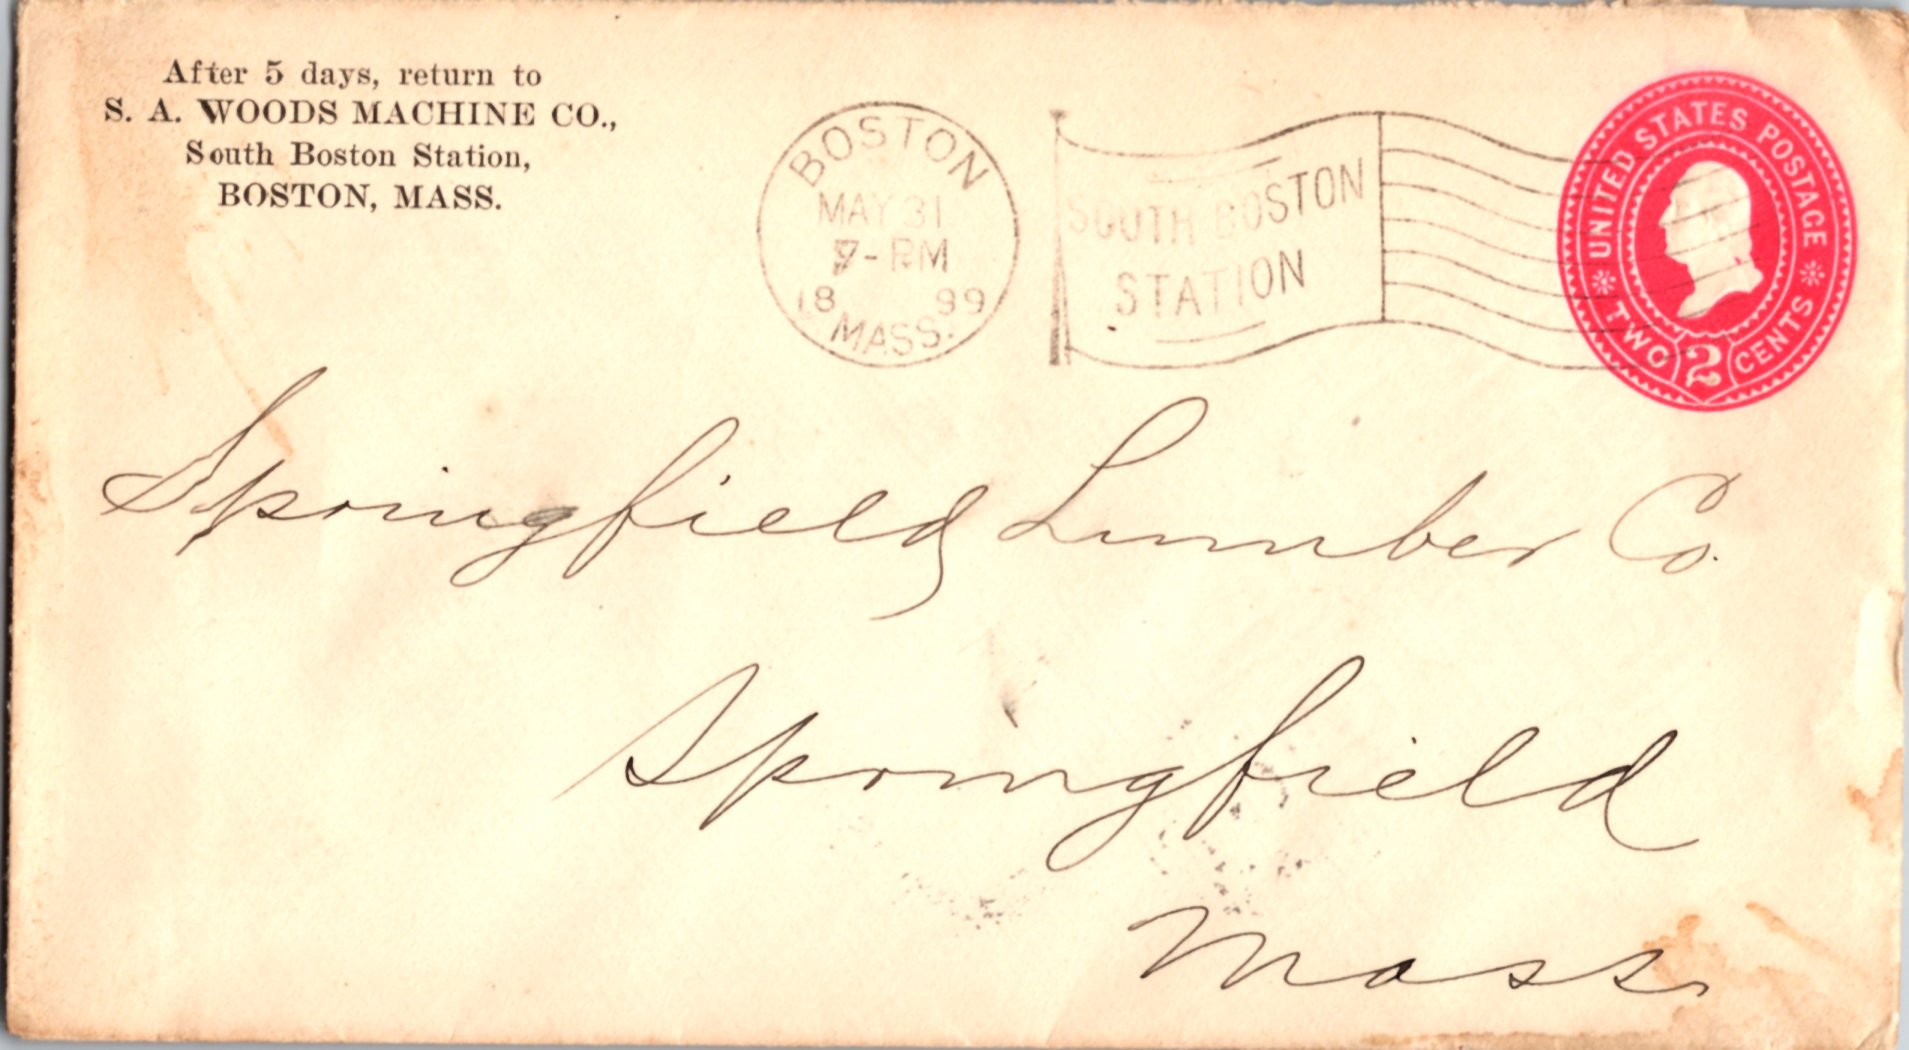 After 5 days, return to
S. A. WOODS MACHINE CO.,
South Boston Station,
BOSTON, MASS.
BOSTON
MAY 31
7-PM
1899
MASS.
SOUTH BOSTON
STATION
UNITED STATES POSTAGE
TWO 2 CENTS
Springfield Lumber Co.
Springfield
Mass.